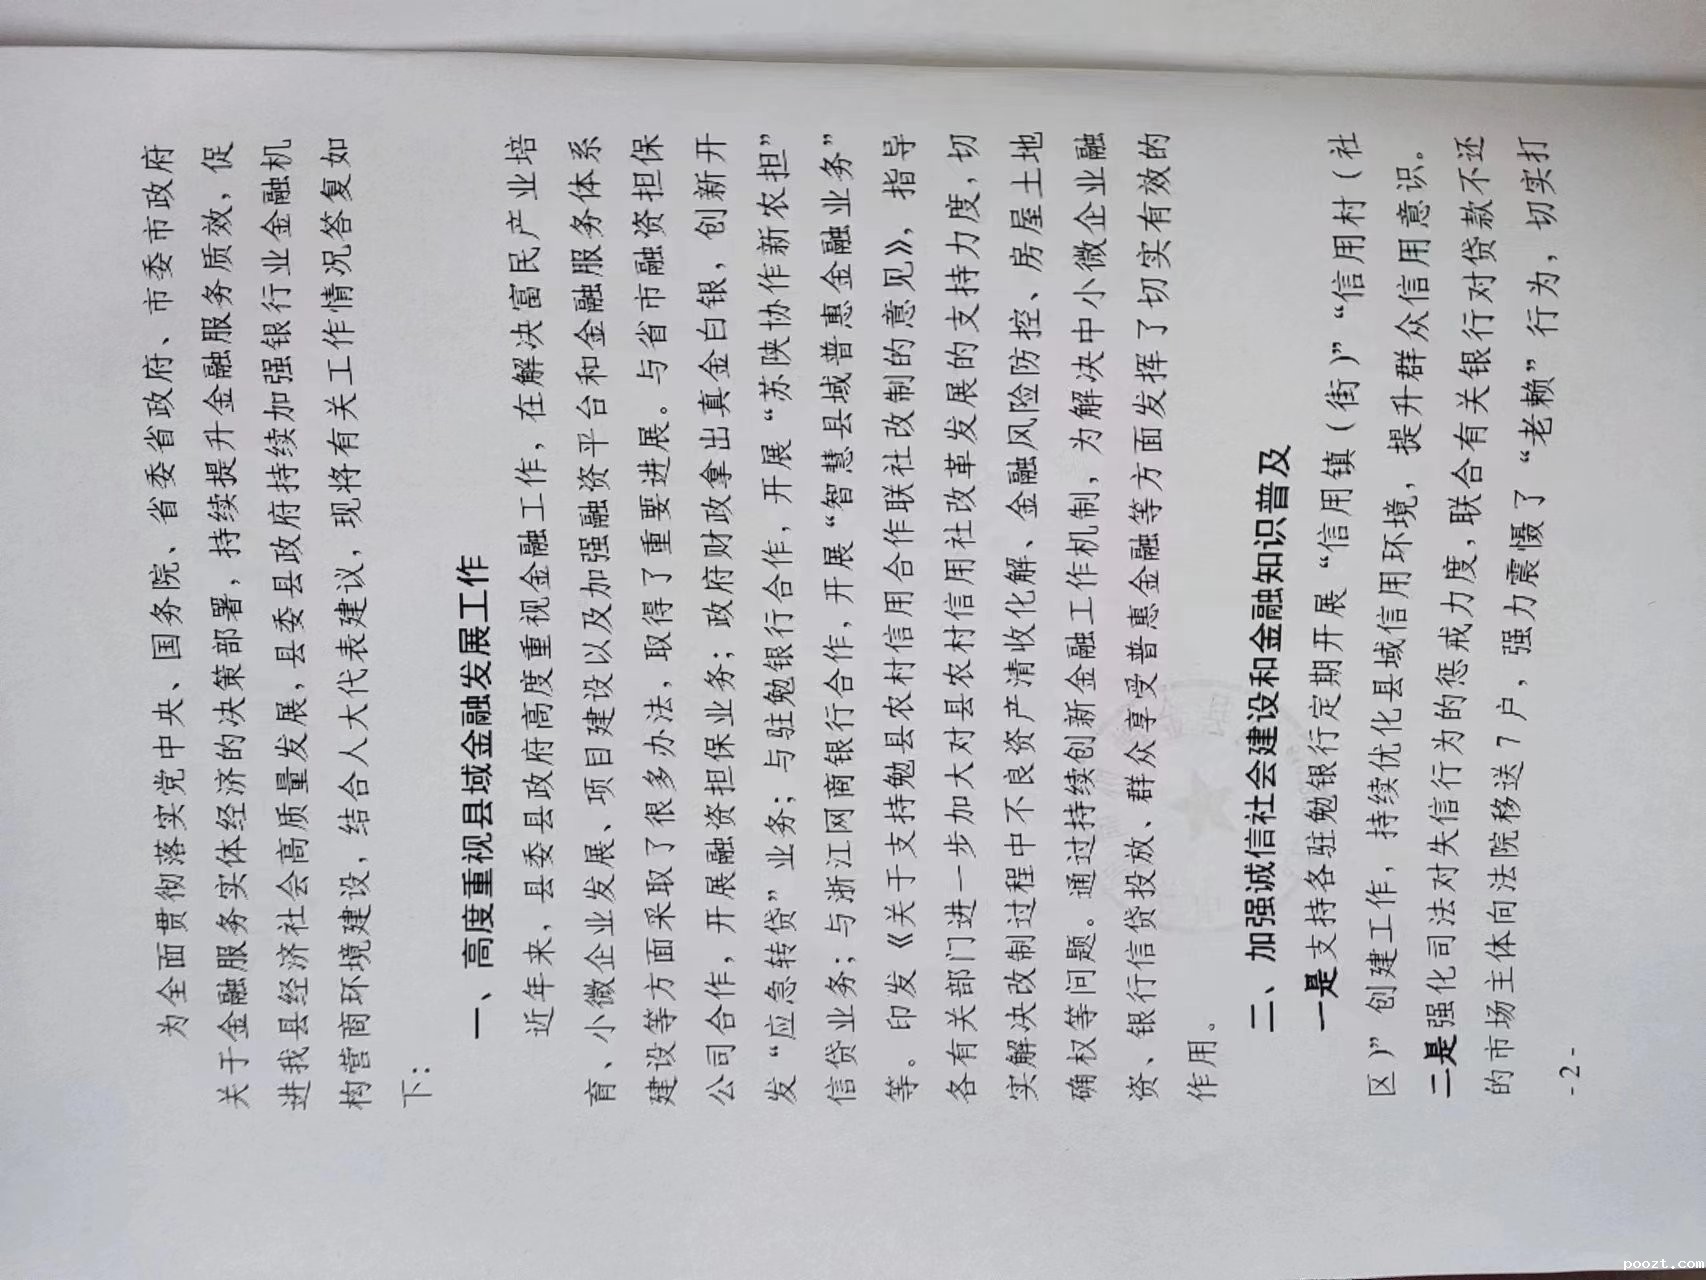 为全面贯彻落实党中央、国务院、省委省政府、市委市政府
关于金融服务实体经济的决策部署，持续提升金融服务质效，促
进我县经济社会高质量发展，县委县政府持续加强银行业金融机
构营商环境建设，结合人大代表建议，现将有关工作情况答复如
下：
一、高度重视县域金融发展工作
近年来，县委县政府高度重视金融工作，在解决富民产业培
育、小微企业发展、项目建设以及加强融资平台和金融服务体系
建设等方面采取了很多办法，取得了重要进展。与省市融资担保
公司合作，开展融资担保业务；政府财政拿出真金白银，创新开
发“应急转贷”业务；与驻勉银行合作，开展“苏陕协作新农担”
信贷业务；与浙江网商银行合作，开展“智慧县域普惠金融业务”
等。印发《关于支持勉县农村信用合作联社改制的意见》，指导
各有关部门进一步加大对县农村信用社改革发展的支持力度，切
实解决改制过程中不良资产清收化解、金融风险防控、房屋土地
确权等问题。通过持续创新金融工作机制，为解决中小微企业融
资、银行信贷投放、群众享受普惠金融等方面发挥了切实有效的
作用。
二、加强诚信社会建设和金融知识普及
一是支持各驻勉银行定期开展“信用镇（街）”“信用村（社
区）”创建工作，持续优化县域信用环境，提升群众信用意识。
二是强化司法对失信行为的惩戒力度，联合有关银行对贷款不还
的市场主体向法院移送7户，强力震慑了“老赖”行为，切实打
-2-
poozt.com